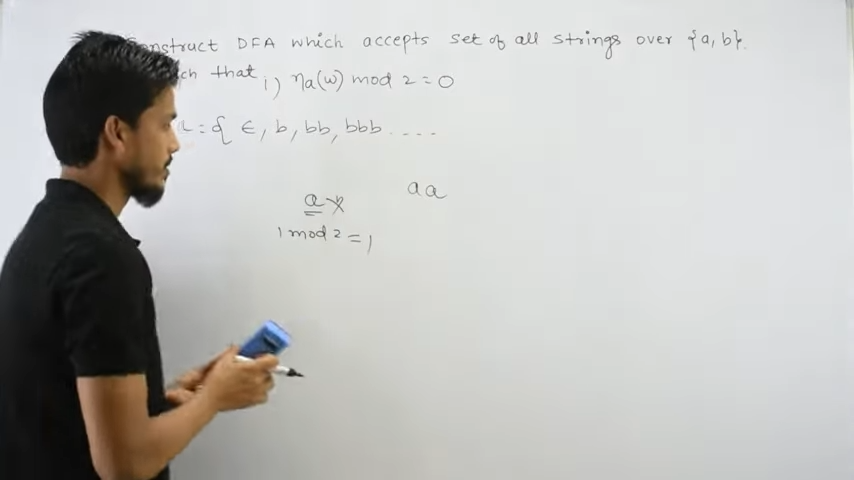 onstruct DFA which accepts set of all strings over {a, b}.
ch that i) na(w) mod 2 = 0
L = { ∈, b, bb, bbb ....
a x aa
1 mod 2 = 1